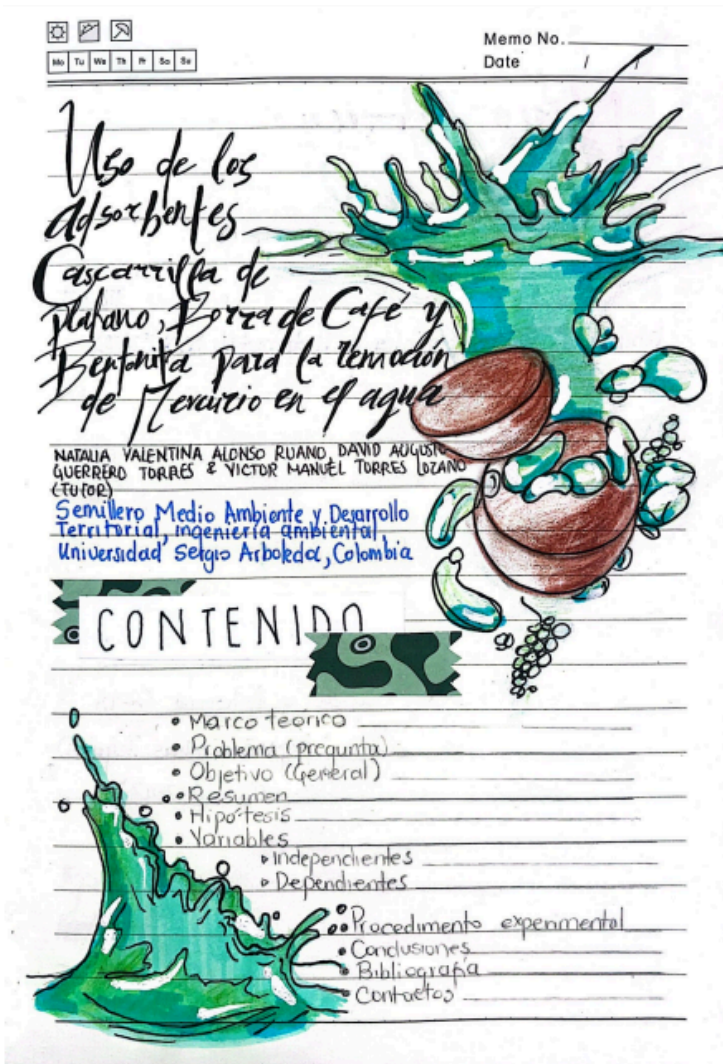 Memo No.
Mo Tu We Th Fr Sa Su
Date / /
Uso de los
adsorbentes
Cascarrilla de
plátano, Borra de Café y
Bentonita para la remoción
de Mercurio en el agua
NATALIA VALENTINA ALONSO RUANO, DAVID AUGUSTO
GUERRERO TORRES & VICTOR MANUEL TORRES LOZANO
(TUTOR)
Semillero Medio Ambiente y Desarrollo
Territorial, ingeniería ambiental
Universidad Sergio Arboleda, Colombia
CONTENIDO
• Marco teórico
• Problema (pregunta)
• Objetivo (General)
• Resumen
• Hipótesis
• Variables
▹ Independientes
▹ Dependientes
• Procedimento experimental
• Conclusiones
• Bibliografía
• Contactos